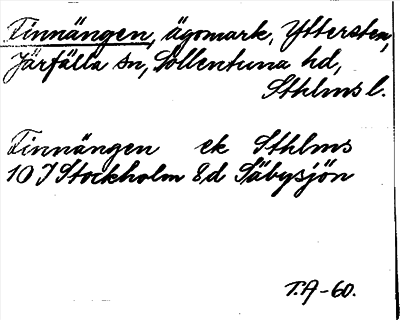 Finnängen, ägomark, Yttersten,
Järfälla sn, Sollentuna hd,
Sthlms l.
Finnängen ek Sthlms
10 I Stockholm 8d Säbysjön
T.A-60.